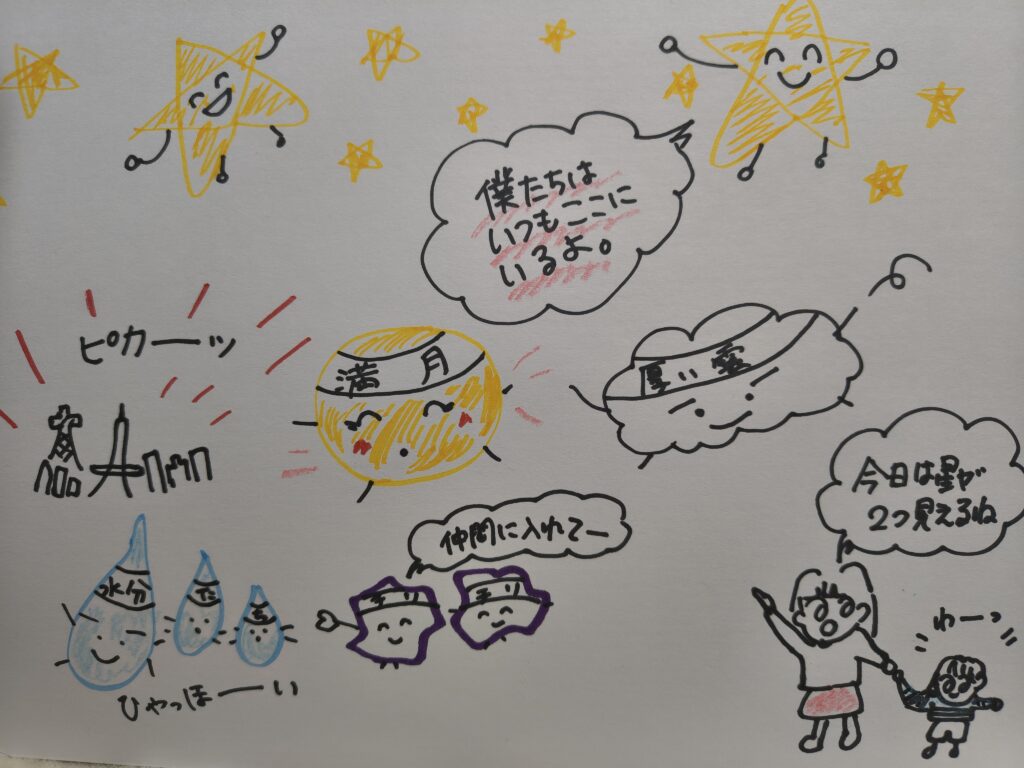 僕たちは
いつもここに
いるよ。
ピカーッ
満月
厚い雲
今日は星が
2つ見えるね
仲間に入れてー
水分
だ
ち
チリ
チリ
わーっ
ひゃっほーい